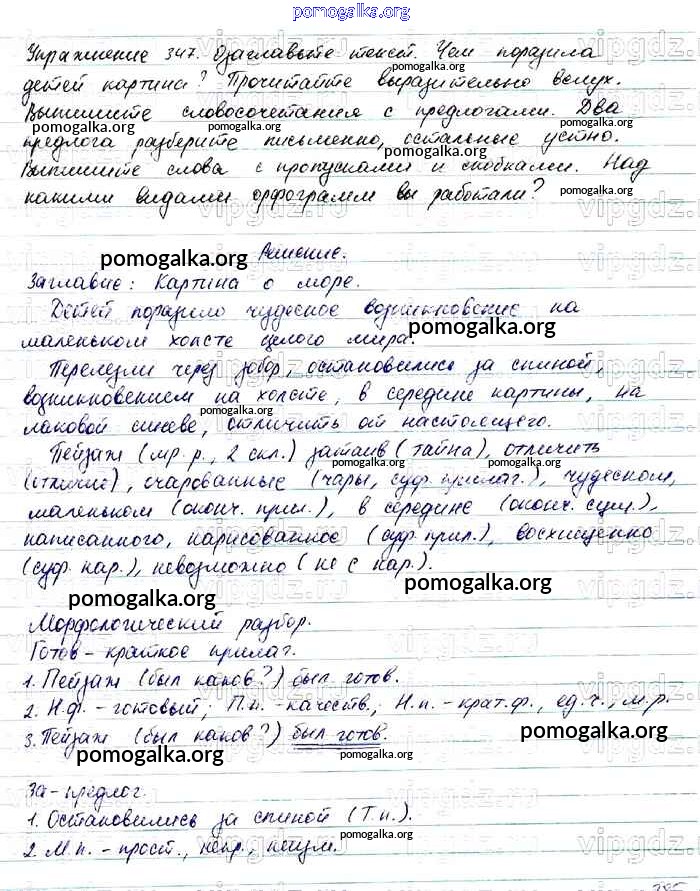 pomogalka.org
Упражнение 347. Озаглавьте текст. Чем поразила
детей картина? Прочитайте выразительно вслух.
Выпишите словосочетания с предлогами. Два
предлога разберите письменно, остальные устно.
Выпишите слова с пропусками и скобками. Над
какими видами орфограмм вы работали?
Решение.
Заглавие: Картина о море.
Детей поразило чудесное возникновение на
маленьком холсте целого мира.
Перелезли через забор, остановились за спиной,
возникновением на холсте, в середине картины, на
лаковой синеве, отличить от настоящего.
Пейзаж (мр. р., 2 скл.) затаив (тайна), отличить
(отличие), очарованные (чары, суф. прилаг.), чудесном,
маленьком (оконч. прил.), в середине (оконч. сущ.),
написанного, нарисованное (суф. прил.), восхищенно
(суф. нар.), невозможно (не с нар.).
Морфологический разбор.
Готов - краткое прилаг.
1. Пейзаж (был каков?) был готов.
2. Н.ф. - готовый; П.п. - качеств.; Н.п. - крат.ф., ед.ч., м.р.
3. Пейзаж (был каков?) был готов.
За - предлог.
1. Остановились за спиной (Т.п.).
2. М.п. - прост., непр., неизм.